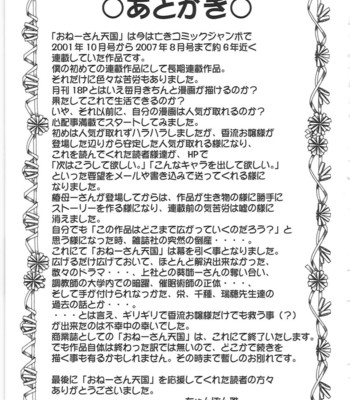 ○あとがき○
「おねーさん天国」は今は亡きコミックジャンボで
2001年10月号から2007年8月号まで約6年近く
連載していた作品です。
僕の初めての連載作品にして長期連載作品。
それだけに色々な苦労もありました。
月刊18Pとはいえ毎月きちんと漫画が描けるのか?
果たしてこれで生活できるのか?
いや、それ以前に、自分の漫画は人気が取れるのか?
心配事満載でスタートしてみました。
初めは人気が取れずハラハラしましたが、香流お嬢様が
登場した辺りから安定した人気が取れる様になり、
これを読んでくれた読者様達が、HPで
「次はこうして欲しい。」「こんなキャラを出して欲しい。」
といった要望をメールや書き込みで送ってくれる様に
なりました。
療母ーさんが登場してからは、作品が生き物の様に勝手に
ストーリーを作る様になり、連載前の気苦労は嘘の様に
消えました。
自分でも「この作品はどこまで広がっていくのだろう?」と
思う様になった時、雑誌社の突然の倒産・・・・。
これにて「おねーさん天国」は幕を引く事となりました。
広げるだけ広げておいて、ほとんど解決出来なかった、
散々のドラマ・・・、上社との葵師ーさんの奪い合い、
調教師の大学内での暗躍、催眠術師の正体・・・、
そして手が付けられなかった、栄、千種、瑞穂先生達の
過去の話とか・・・。
・・・とは言え、ギリギリで香流お嬢様だけでも救う事(?)
が出来たのは不幸中の幸いでした。
商業誌としての「おねーさん天国」は、これにて終了いたします。
でも作品自体は終わった訳では無いので、どこかで続きを
描く事も有るかもしれません。その時まで暫しのお別れです。
最後に「おねーさん天国」を応援してくれた読者の方々
ありがとうございました。